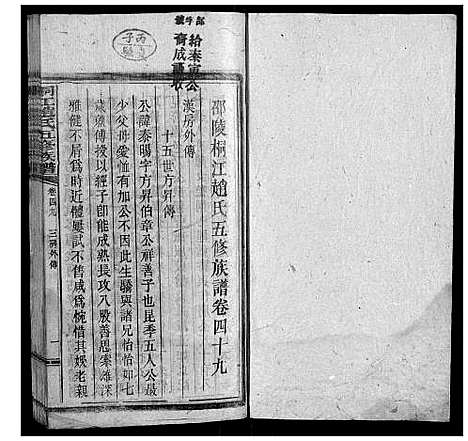 部字號
給泰寅公
裔咸
丙子
邵陵桐江趙氏五修族譜卷四十九
漢房外傳
十五世方昇傳
公諱泰暘字方昇伯章公祥善子也昆季五人公最
少父母愛恤有加公不因此生驕與諸兄怡怡如七
歲就傅授以經子卽能成熟長攻八股善思索雅深
雅健不屑爲時近體屢試不售咸爲惋惜其娛老親
桐江趙氏五修族譜
卷四九
外傳
一